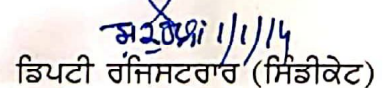 1/1/14
ਡਿਪਟੀ ਰਜਿਸਟਰਾਰ (ਸਿੰਡੀਕੇਟ)